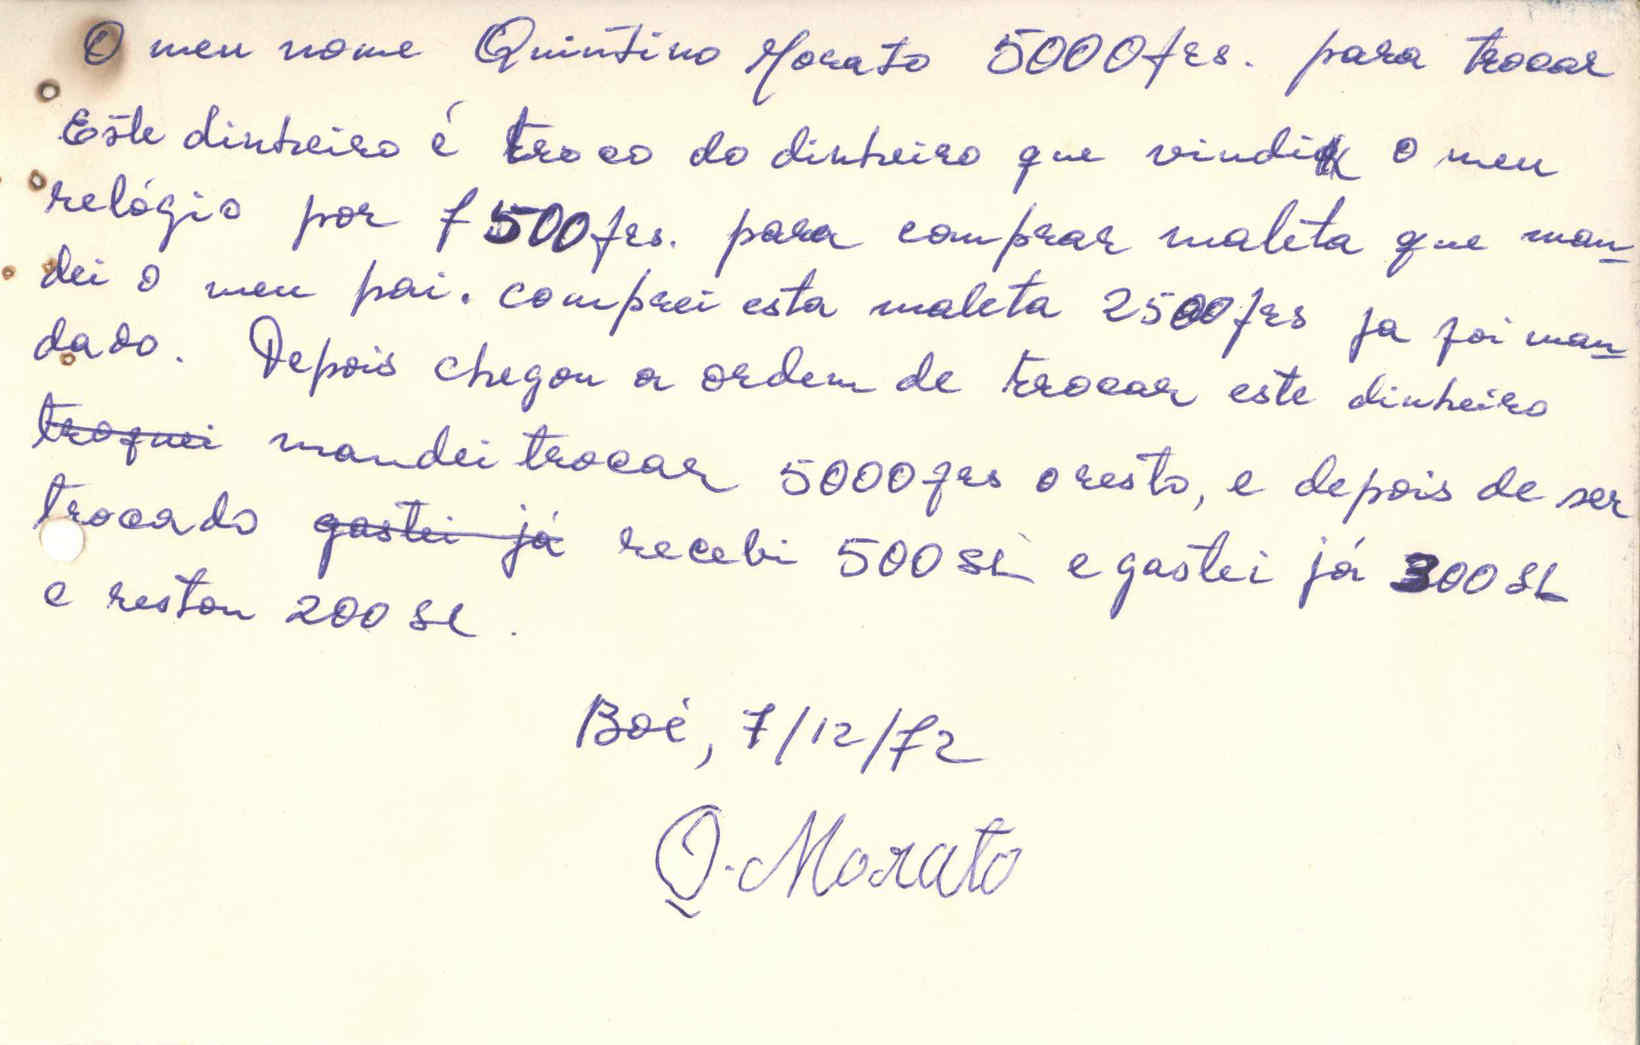 O meu nome Quintino Morato 5000 frs. para trocar
Este dinheiro é troco do dinheiro que vindi o meu
relógio por 7500 frs. para comprar maleta que man-
dei o meu pai. comprei esta maleta 2500 frs ja foi man-
dado. Depois chegou a ordem de trocar este dinheiro
troquei mandei trocar 5000 frs o resto, e depois de ser
trocado gastei já recebi 500 SL e gastei já 300 SL
e restou 200 SL.
Boé, 7/12/72
Q. Morato